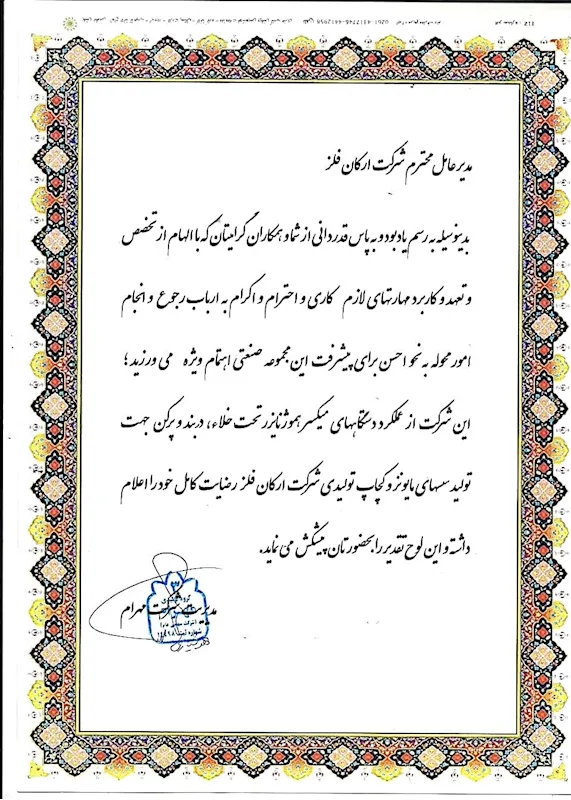 مدیر عامل محترم شرکت ارکان فلز
بدینوسیله به رسم یادبود و به پاس قدردانی از شما و همکاران گرامیتان که با الهام از تخصص
و تعهد و کاربرد مهارتهای لازم کاری و احترام و اکرام به ارباب رجوع و انجام
امور محوله به نحو احسن برای پیشرفت این مجموعه صنعتی اهتمام ویژه می ورزید ؛
این شرکت از عملکرد دستگاههای میکسر هموژنایزر تحت خلاء، دربند و پرکن جهت
تولید سسهای مایونز و کچاپ تولیدی شرکت ارکان فلز رضایت کامل خود را اعلام
داشته و این لوح تقدیر را بحضورتان پیشکش می نماید.
مدیریت شرکت مهرام